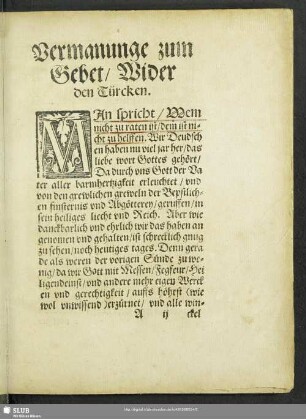 Vermanunge zum
Gebet/ Wider
den Türcken.
MAn spricht/ Wem
nicht zu raten ist/ dem ist ni-
cht zu helffen. Wir Deudsch
en haben nu viel jar her/ das
liebe wort Gottes gehört/
Da durch vns Gott der Va
ter aller barmhertzigkeit erleuchtet / vnd
von den grewlichen greweln der Bepstlich-
en finsternis vnd Abgötterey/ geruffen/ in
sein heiliges liecht vnd Reich. Aber wie
danckbarlich vnd ehrlich wir das haben an
genomen vnd gehalten/ ist schrecklich gnug
zu sehen/ noch heutiges tages. Denn gera
de als weren der vorigen Sünde zu we-
nig/ da wir Gott mit Messen/ Fegfeur/ Hei
ligendienst/ vnd andere mehr eigen Werck
en vnd gerechtigkeit / auffs höhest (wie
wol vnwissend) erzürnet/ vnd alle win-
A ij ckel
SLUB